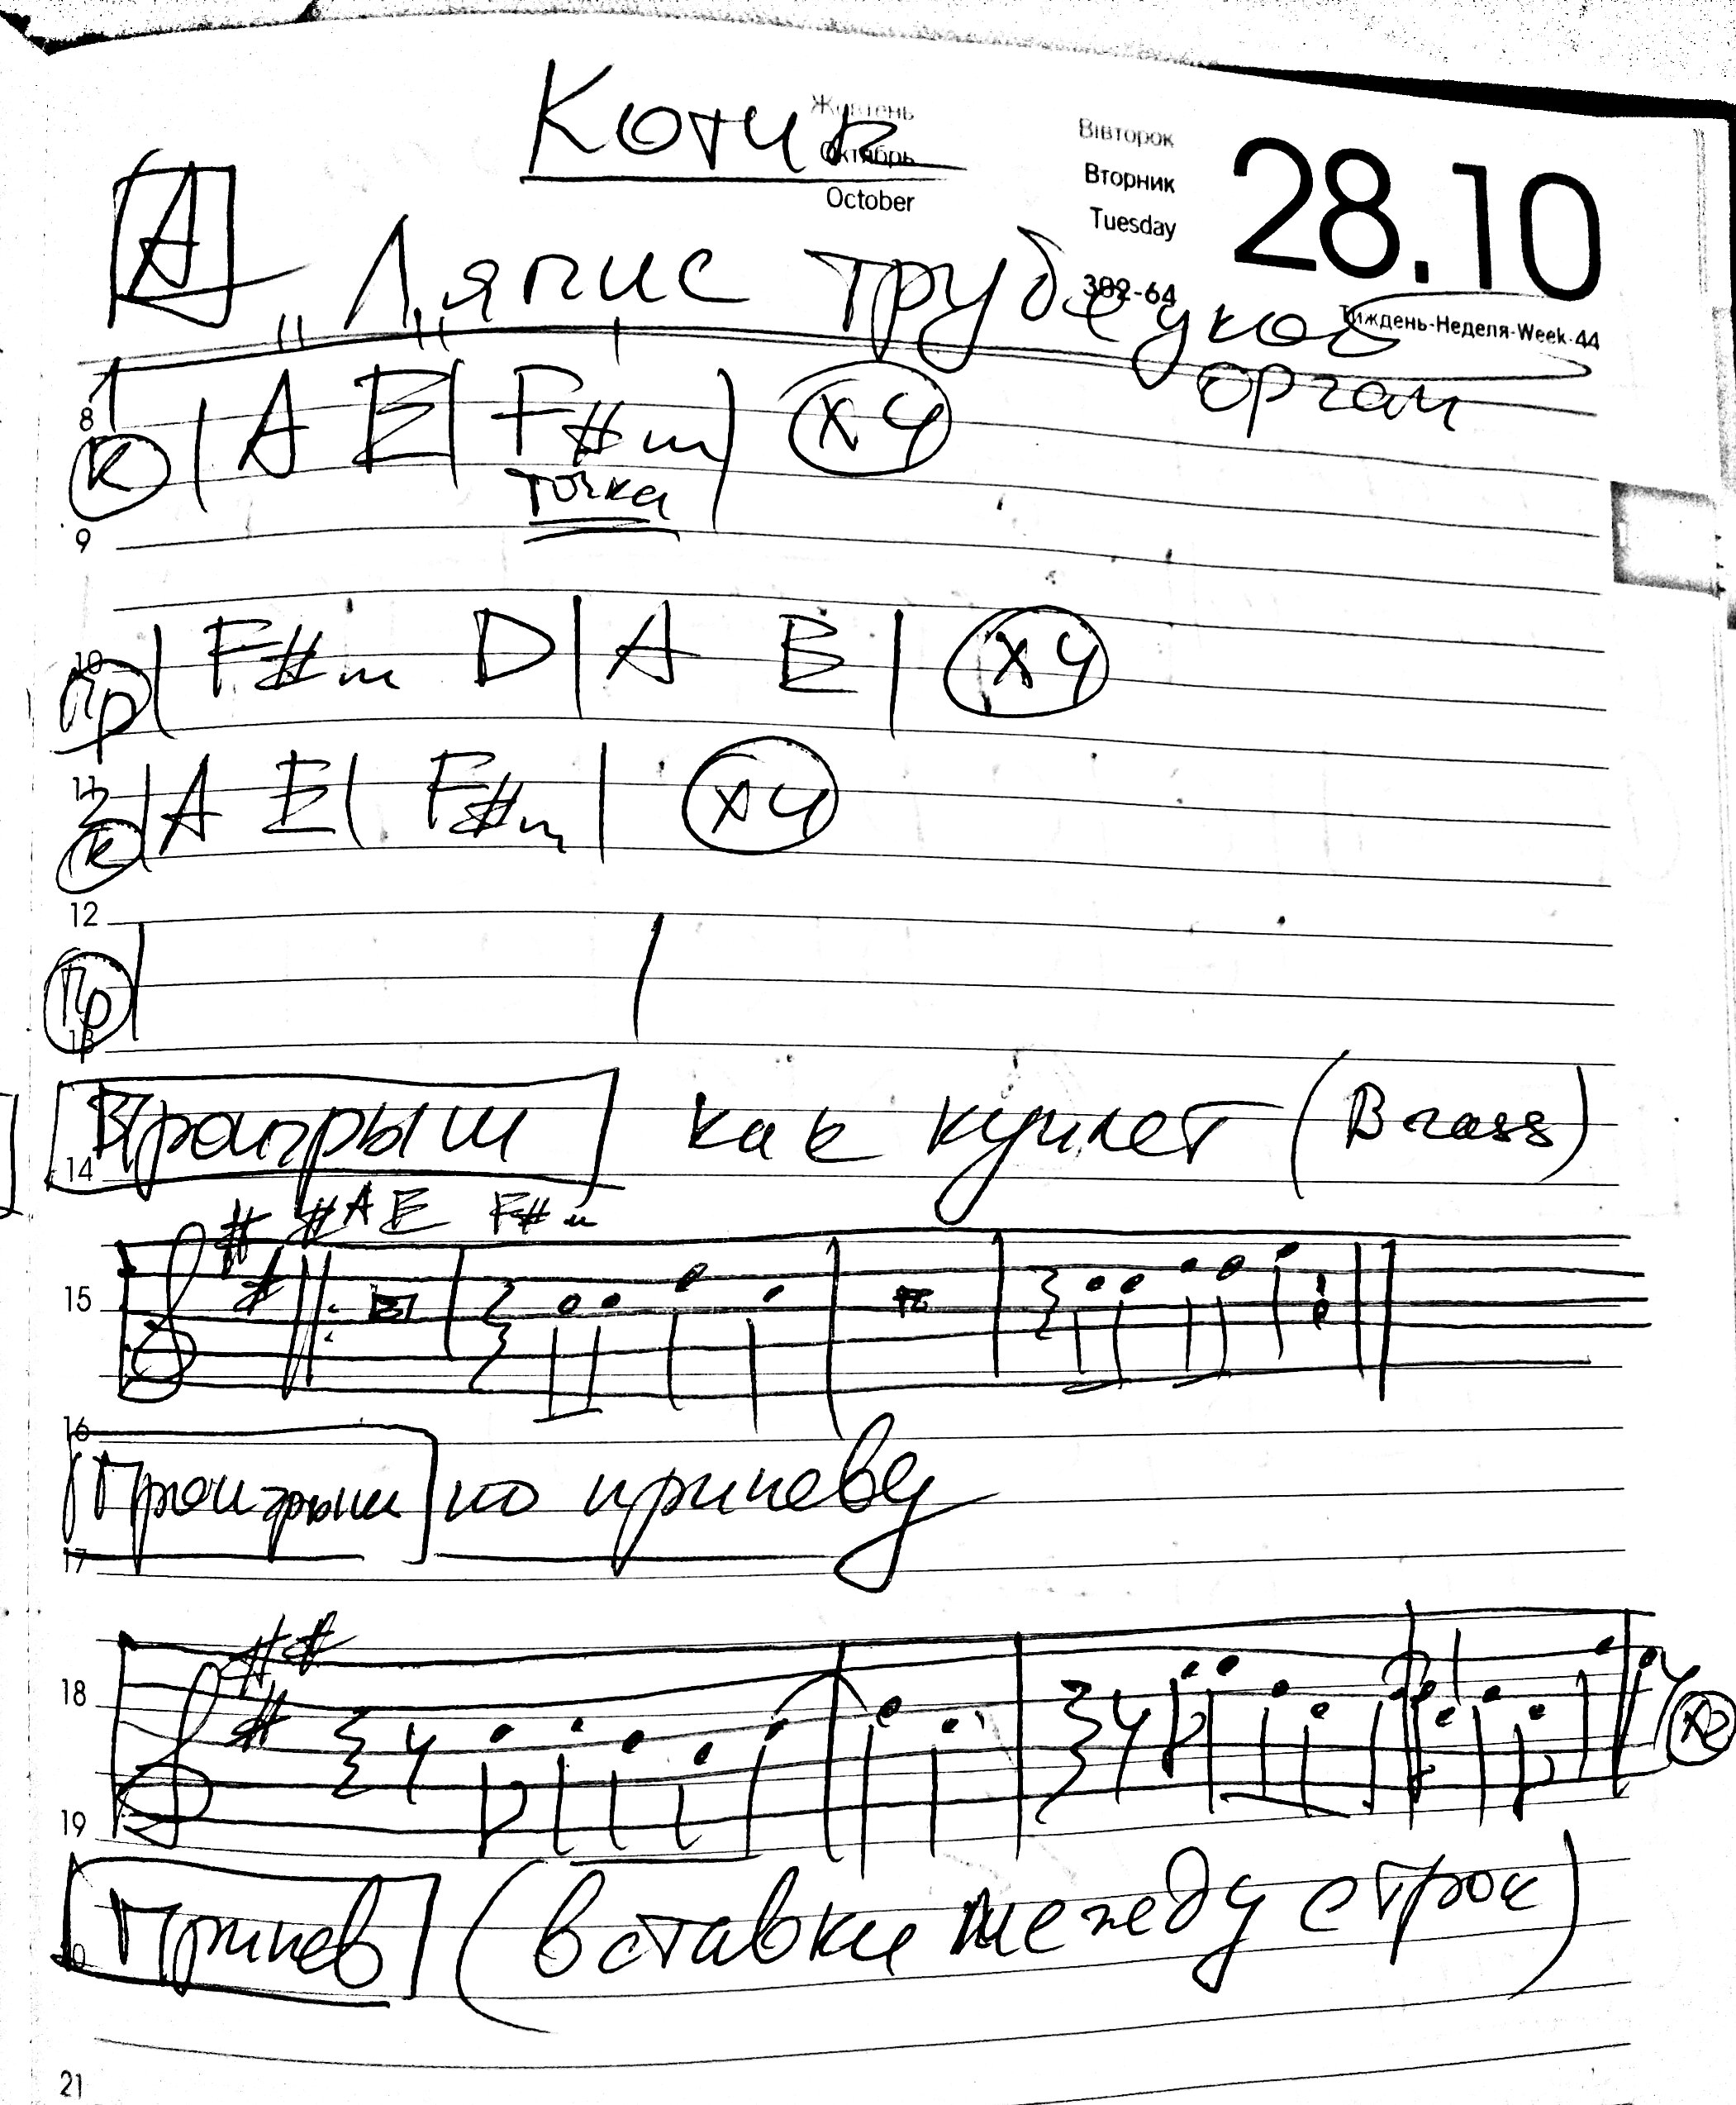 Котик
Жовтень
Октябрь
October
Вівторок
Вторник
Tuesday
302-64
28.10
Тиждень-Неделя-Week-44
A
"Ляпис Трубецкой
орган
8 1
К | A E | F#m | x4
точка
9
10
Пр | F#m D | A E | x4
11
2
К | A E | F#m | x4
12
Пр
13
Проигрыш как куплет (Brass)
14
A E F#m
15
16
Проигрыш по припеву
17
18
x2
19
Припев (вставки между строк)
20
21